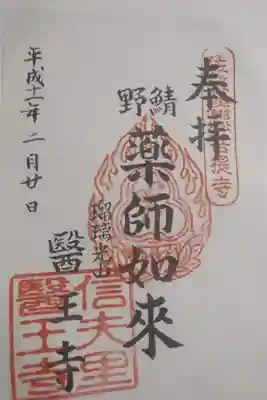 奉拝
鯖野
薬師如来
瑠璃光山
醫王寺
平成十一年二月廿日
信夫里
醫王寺